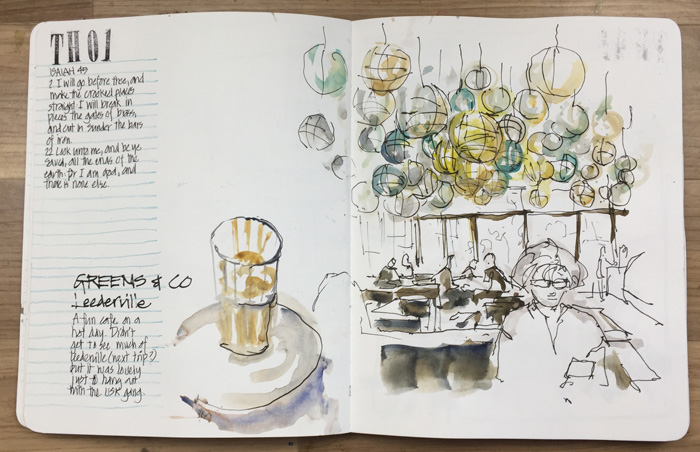 TH 01
ISAIAH 45
2. I will go before thee, and
make the crooked places
straight: I will break in
pieces the gates of brass,
and cut in sunder the bars
of iron.
22 Look unto me, and be ye
saved, all the ends of the
earth: for I am God, and
there is none else.
GREENS & CO
Leederville
A fun cafe on a
hot day. Didn't
get to see much of
Leederville (next trip?)
but it was lovely
just to hang out
with the USK gang.